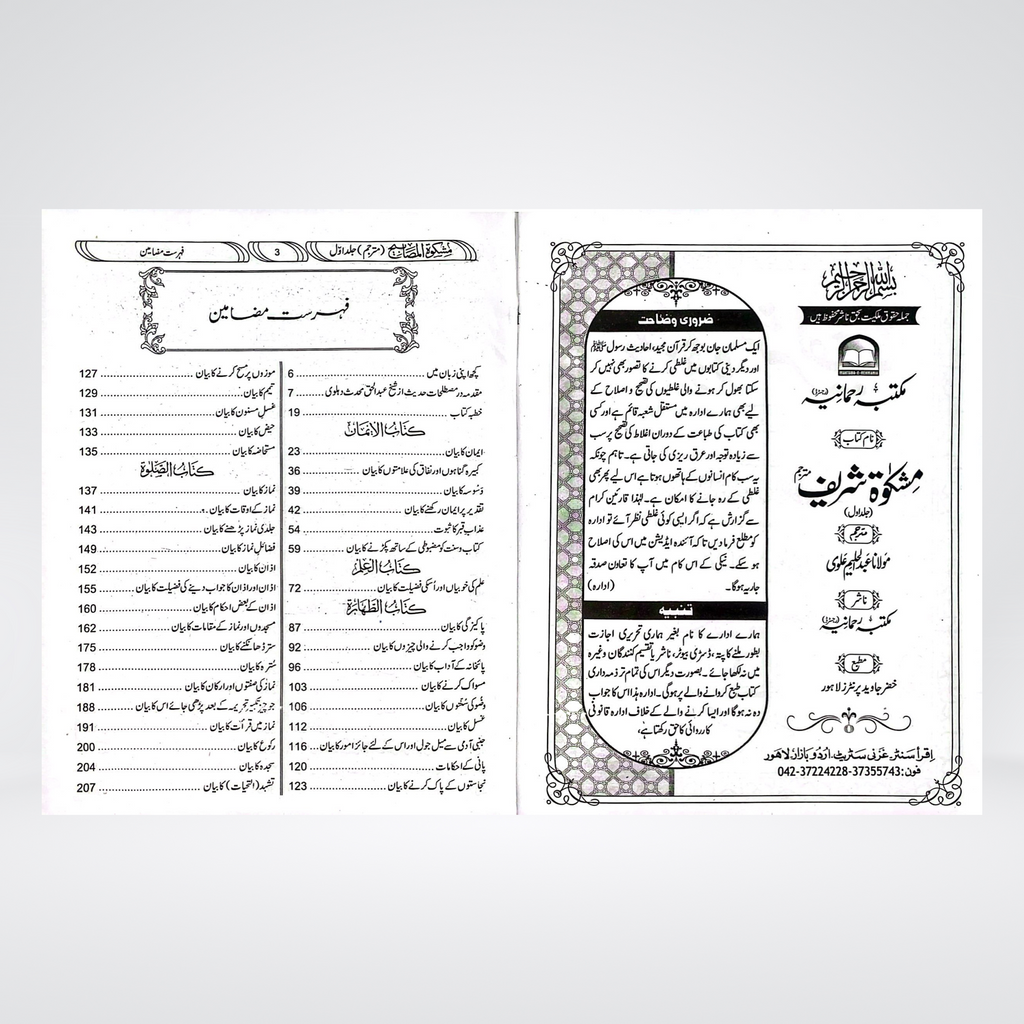 بسم الله الرحمن الرحيم
جملہ حقوق ملکیت بحق ناشر محفوظ ہیں
مکتبہ رحمانیہ (رجسٹرڈ)
نام کتاب
مشکوٰۃ شریف مترجم
(جلد اول)
مترجم
مولانا عبدالحلیم علوی
ناشر
مکتبہ رحمانیہ (رجسٹرڈ)
مطبع
خضر جاوید پرنٹرز لاہور
اِقرأ سنٹر غزنی سٹریٹ اُردو بازار لاہور
فون:37355743-37224228-042
ضروری وضاحت
ایک مسلمان جان بوجھ کر قرآن مجید، احادیث رسول ﷺ
اور دیگر دینی کتابوں میں غلطی کرنے کا تصور بھی نہیں کر
سکتا بھول کر ہونے والی غلطیوں کی تصحیح و اصلاح کے
لیے بھی ہمارے ادارہ میں مستقل شعبہ قائم ہے اور کسی
بھی کتاب کی طباعت کے دوران اغلاط کی تصحیح پر سب
سے زیادہ توجہ اور عرق ریزی کی جاتی ہے۔ تاہم چونکہ
یہ سب کام انسانوں کے ہاتھوں ہوتا ہے اس لیے پھر بھی
غلطی کے رہ جانے کا امکان ہے۔ لہٰذا قارئین کرام
سے گزارش ہے کہ اگر ایسی کوئی غلطی نظر آئے تو ادارہ
کو مطلع فرما دیں تاکہ آئندہ ایڈیشن میں اس کی اصلاح
ہو سکے۔ نیکی کے اس کام میں آپ کا تعاون صدقہ
جاریہ ہوگا۔ (ادارہ)
تنبیہ
ہمارے ادارے کا نام بغیر ہماری تحریری اجازت
بطور ملنے کا پتہ، ڈسٹری بیوٹر، ناشر یا تقسیم کنندگان وغیرہ
میں نہ لکھا جائے۔ بصورت دیگر اس کی تمام تر ذمہ داری
کتاب طبع کروانے والے پر ہوگی۔ ادارہ ہذا اس کا جواب
دہ نہ ہوگا اور ایسا کرنے والے کے خلاف ادارہ قانونی
کارروائی کا حق رکھتا ہے،
مشکوٰۃ المصابیح (مترجم) جلد اول 3 فہرست مضامین
فہرست مضامین
کچھ اپنی زبان میں 6
مقدمہ در مصطلحات حدیث از شیخ عبدالحق محدث دہلوی 7
خطبہ کتاب 19
كتاب الإيمان
ایمان کا بیان 23
کبیرہ گناہوں اور نفاق کی علامتوں کا بیان 36
وَسْوسہ کا بیان 39
تقدیر پر ایمان رکھنے کا بیان 42
عذاب قبر کا ثبوت 54
کتاب و سنت کو مضبوطی کے ساتھ پکڑنے کا بیان 59
كتاب العلم
علم کی خوبیاں اور اُسکی فضیلت کا بیان 72
كتاب الطهارة
پاکیزگی کا بیان 87
وضو کو واجب کرنے والی چیزوں کا بیان 92
پائخانہ کے آداب کا بیان 96
مسواک کرنے کا بیان 103
وضو کی سُنتوں کا بیان 106
غسل کا بیان 112
جنبی آدمی سے میل جول اور اس کے لئے جائز امور کا بیان 116
پانی کے احکامات 120
نجاستوں کے پاک کرنے کا بیان 123
موزوں پر مسح کرنے کا بیان 127
تیمم کا بیان 129
غسل مسنون کا بیان 131
حیض کا بیان 133
مستحاضہ کا بیان 135
كتاب الصلوة
نماز کا بیان 137
نماز کے اوقات کا بیان 141
جلدی نماز پڑھنے کا بیان 143
فضائل نماز کا بیان 149
اذان کا بیان 152
اذان اور اذان کا جواب دینے کی فضیلت کا بیان 155
اذان کے بعض احکام کا بیان 160
مسجدوں اور نماز کے مقامات کا بیان 162
ستر ڈھانکنے کا بیان 175
سُترہ کا بیان 178
نماز کی صفتوں اور ارکان کا بیان 181
جو چیز تکبیر تحریمہ کے بعد پڑھی جائے اس کا بیان 188
نماز میں قرأت کا بیان 191
رکوع کا بیان 200
سجدہ کا بیان 204
تشہد (التحیات) کا بیان 207